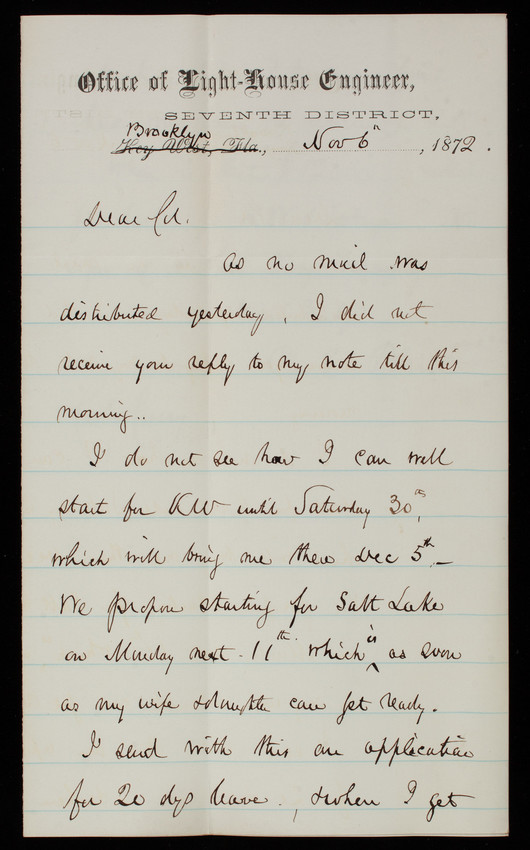 Office of Light-House Engineer,
SEVENTH DISTRICT,
Brooklyn
Key West, Fla., Nov 6th, 1872.
Dear Col.
As no mail was
distributed yesterday, I did not
receive your reply to my note till this
morning..
I do not see how I can well
start for KW until Saturday 30th,
which will bring me there Dec 5th.—
We propose starting for Salt Lake
on Monday next - 11th which is as soon
as my wife & daughter can get ready.
I send with this an application
for 20 dys leave., & when I get